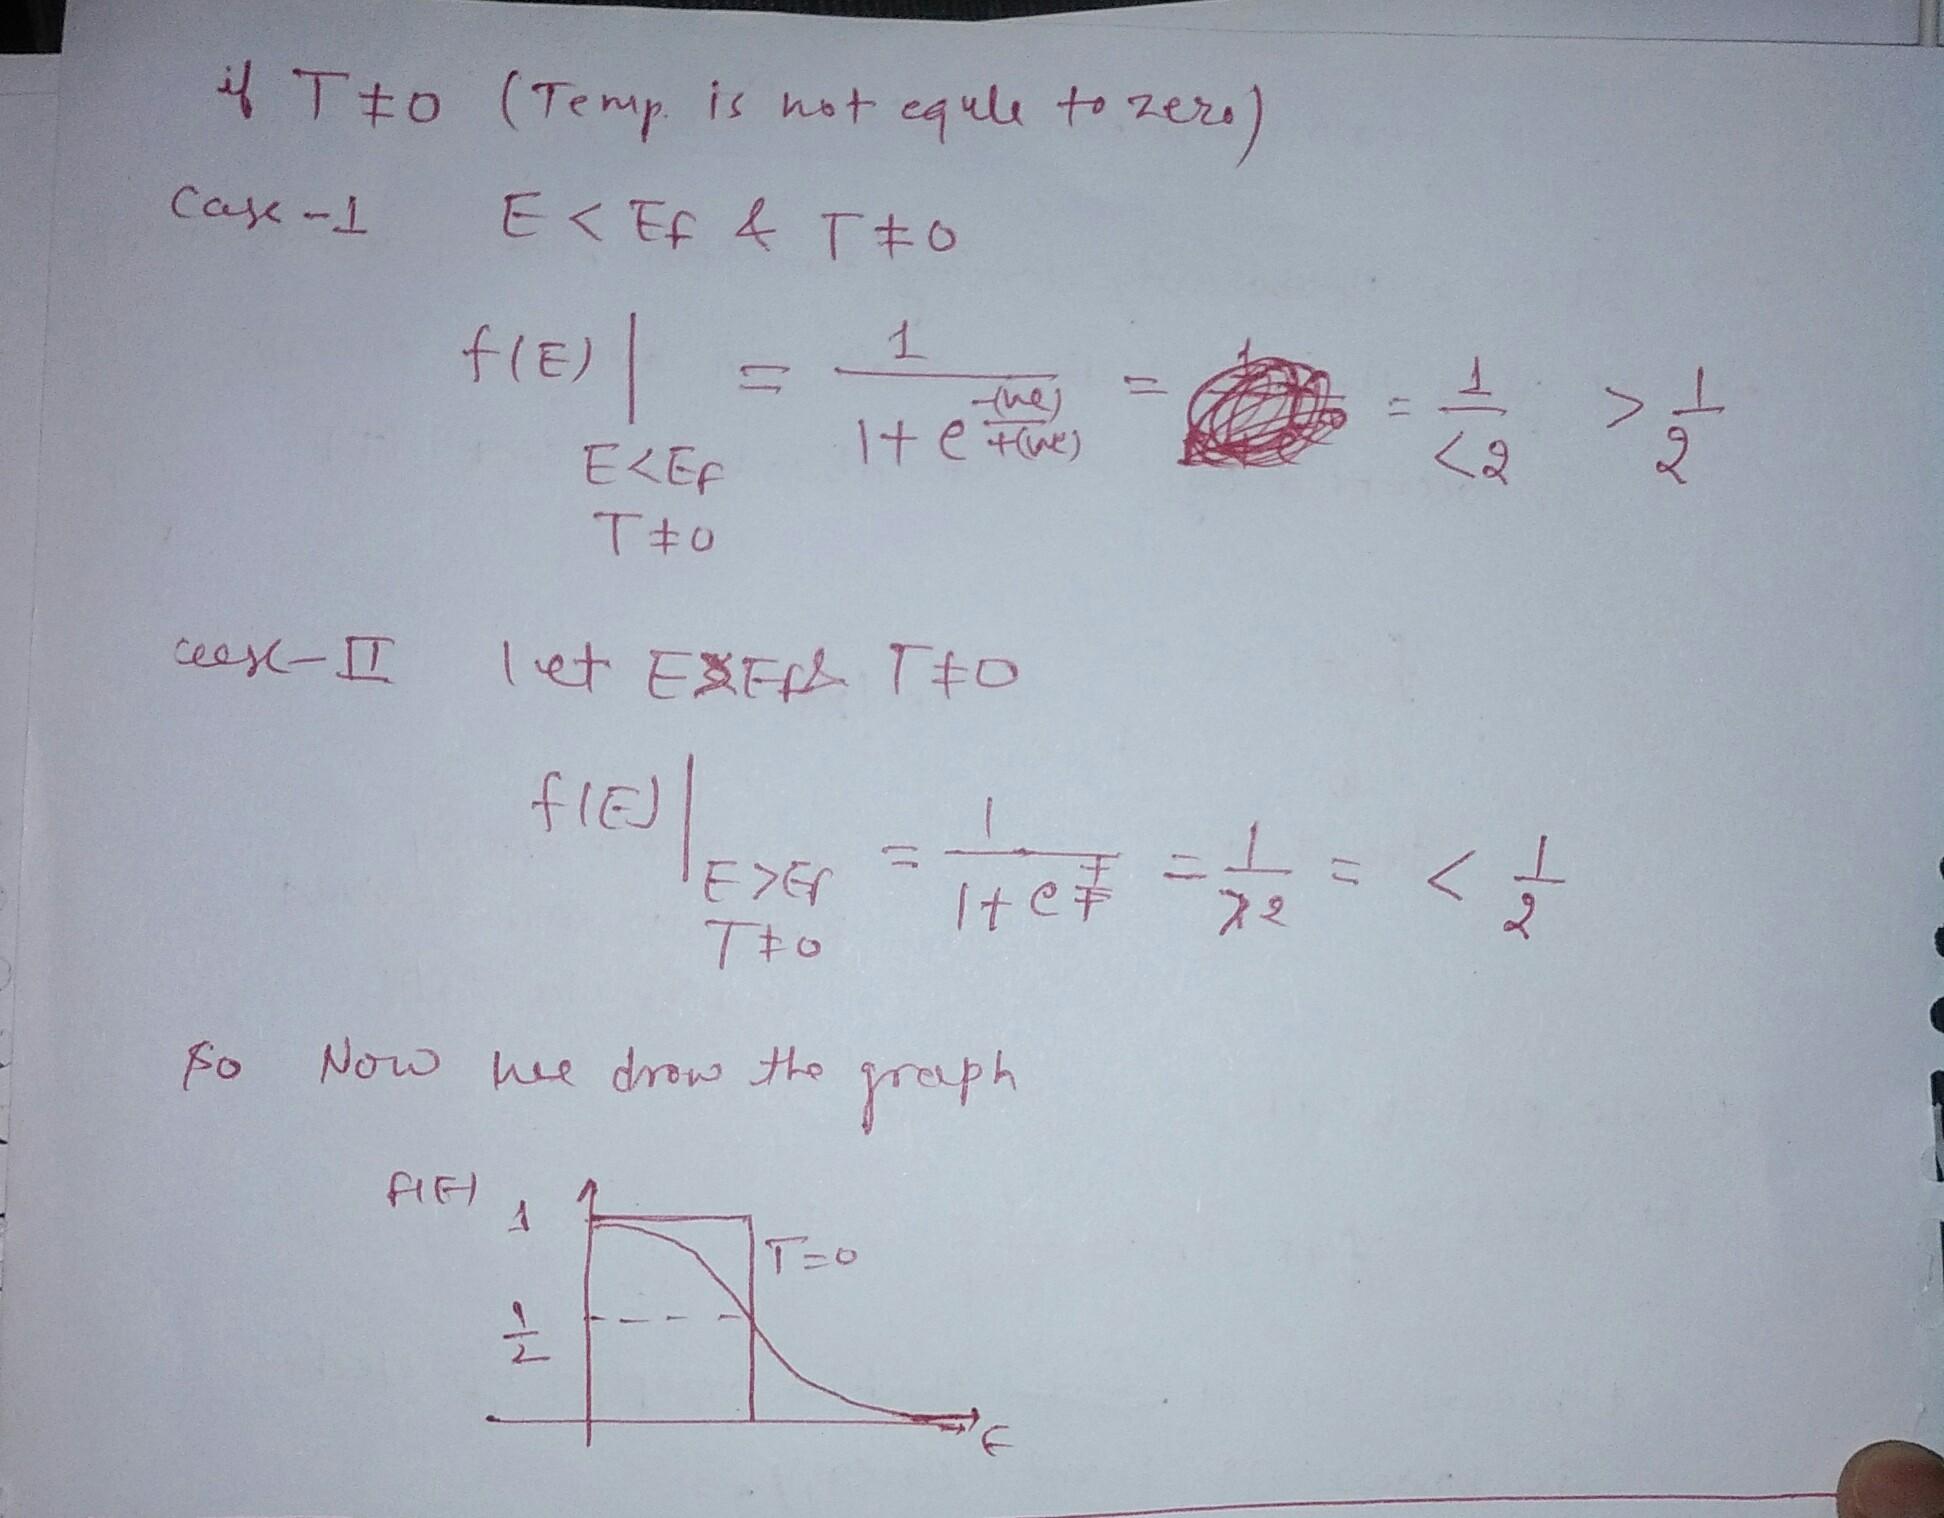 if T ≠ 0 (Temp. is not equle to zero)
Case-1 E < Ef & T ≠ 0
f(E) | E<Ef T≠0 = 1/(1+e^(-(ve)/+(ve))) = = 1/<2 > 1/2
case-II let E>Ef & T ≠ 0
f(E) | E>Ef T≠0 = 1/(1+e^(+/+)) = 1/>2 = < 1/2
so Now we drow the graph
f(E)
1
T=0
1/2
E